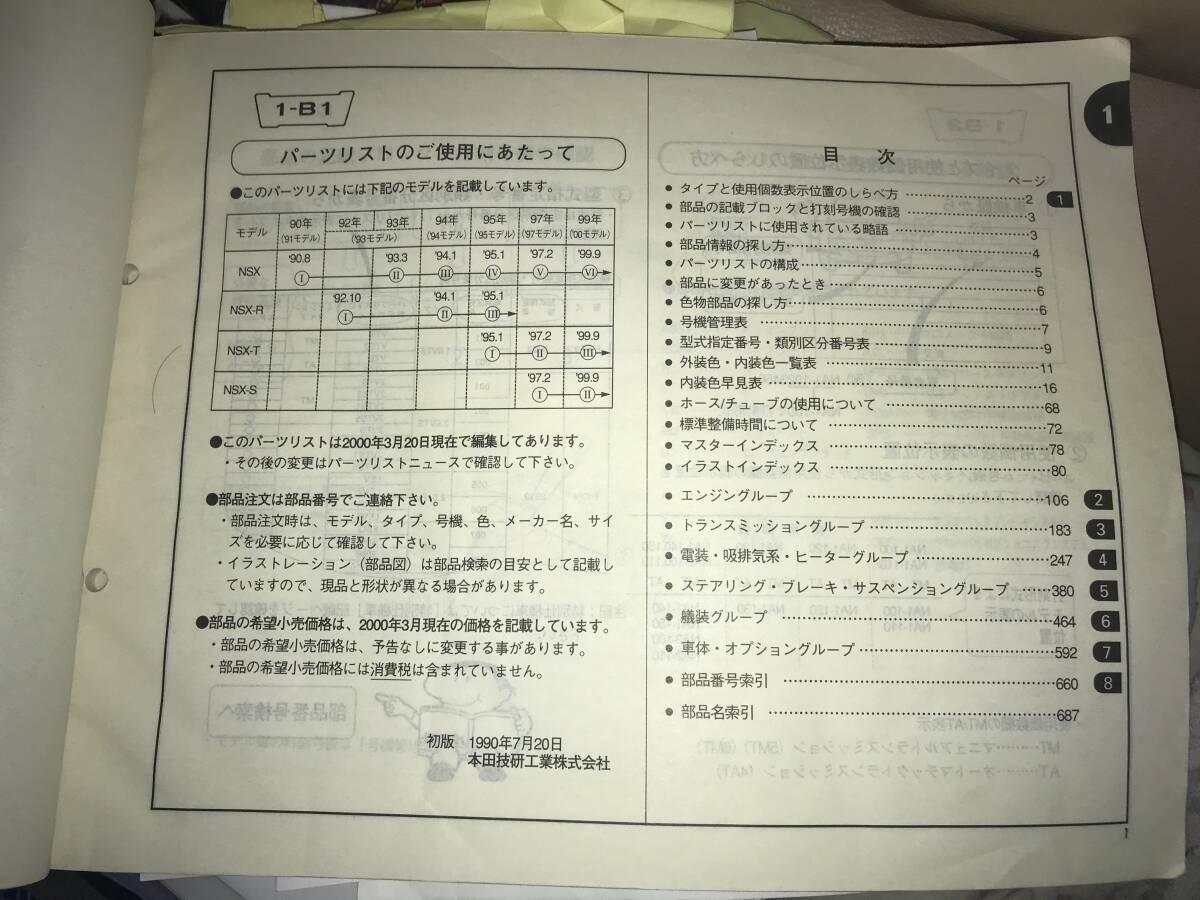 1-B1
パーツリストのご使用にあたって
●このパーツリストには下記のモデルを記載しています。
モデル 90年 92年 93年 94年 95年 97年 99年
('91モデル) ('93モデル) ('94モデル) ('95モデル) ('97モデル) ('00モデル)
'90.8 '93.3 '94.1 '95.1 '97.2 '99.9
NSX Ⅰ Ⅱ Ⅲ Ⅳ Ⅴ Ⅵ
'92.10 '94.1 '95.1
NSX-R Ⅰ Ⅱ Ⅲ
'95.1 '97.2 '99.9
NSX-T Ⅰ Ⅱ Ⅲ
'97.2 '99.9
NSX-S Ⅰ Ⅱ
●このパーツリストは2000年3月20日現在で編集してあります。
・その後の変更はパーツリストニュースで確認して下さい。
●部品注文は部品番号でご連絡下さい。
・部品注文時は、モデル、タイプ、号機、色、メーカー名、サイ
ズを必要に応じて確認して下さい。
・イラストレーション（部品図）は部品検索の目安として記載し
ていますので、現品と形状が異なる場合があります。
●部品の希望小売価格は、2000年3月現在の価格を記載しています。
・部品の希望小売価格は、予告なしに変更する事があります。
・部品の希望小売価格には消費税は含まれていません。
初版 1990年7月20日
本田技研工業株式会社
目 次
ページ
● タイプと使用個数表示位置のしらべ方 ……2 1
● 部品の記載ブロックと打刻号機の確認 ……3
● パーツリストに使用されている略語 ……3
● 部品情報の探し方……4
● パーツリストの構成……5
● 部品に変更があったとき……6
● 色物部品の探し方……6
● 号機管理表 ……7
● 型式指定番号・類別区分番号表……9
● 外装色・内装色一覧表 ……11
● 内装色早見表……16
● ホース/チューブの使用について ……68
● 標準整備時間について ……72
● マスターインデックス ……78
● イラストインデックス ……80
● エンジングループ ……106 2
● トランスミッショングループ……183 3
● 電装・吸排気系・ヒーターグループ……247 4
● ステアリング・ブレーキ・サスペンショングループ……380 5
● 艤装グループ ……464 6
● 車体・オプショングループ……592 7
● 部品番号索引 ……660 8
● 部品名索引 ……687
1
1